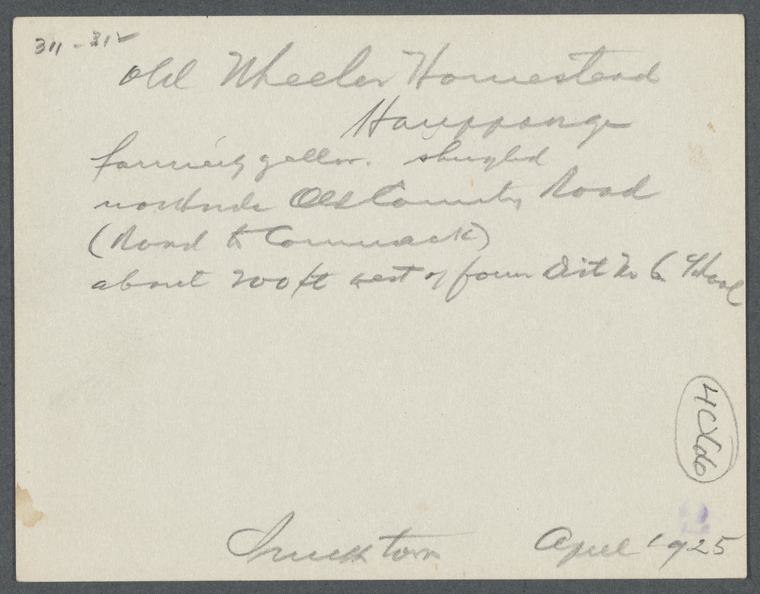 311-312
Old Wheeler Homestead
Hauppauge
formerly yellow. shingled
northside Old County Road
(Road to Commack)
about 200 ft west of former Dist No 6 School
Smithtown April 1925